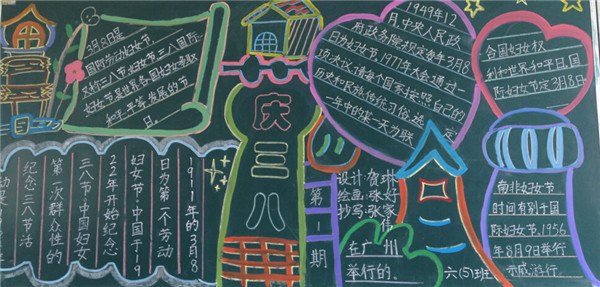 3月8日是
国际劳动妇女节,
又称三八节、妇女节、三八国际
妇女节,是世界各国妇女争取
和平、平等、发展的节
日。
庆三八
1949年12
月中央人民政
府政务院规定每年3月8
日为妇女节1977年大会通过一
项决议,请每个国家按照自己的
历史和民族传统习俗,选定
一年中的某一天为联
合国妇女权
利和世界和平日,国
际妇女节定3月8日
1911年的3月8
日为第一个劳动
妇女节。中国于19
22年开始纪念
三八节。中国妇女
第一次群众性的
纪念三八节活
动是
第一期
设计:贺琳
绘画:张好
抄写:张家伟
在广州
举行的。
六(5)班
南非妇女节
时间有别于国
际妇女节,1956
年8月9日举行
示威游行。